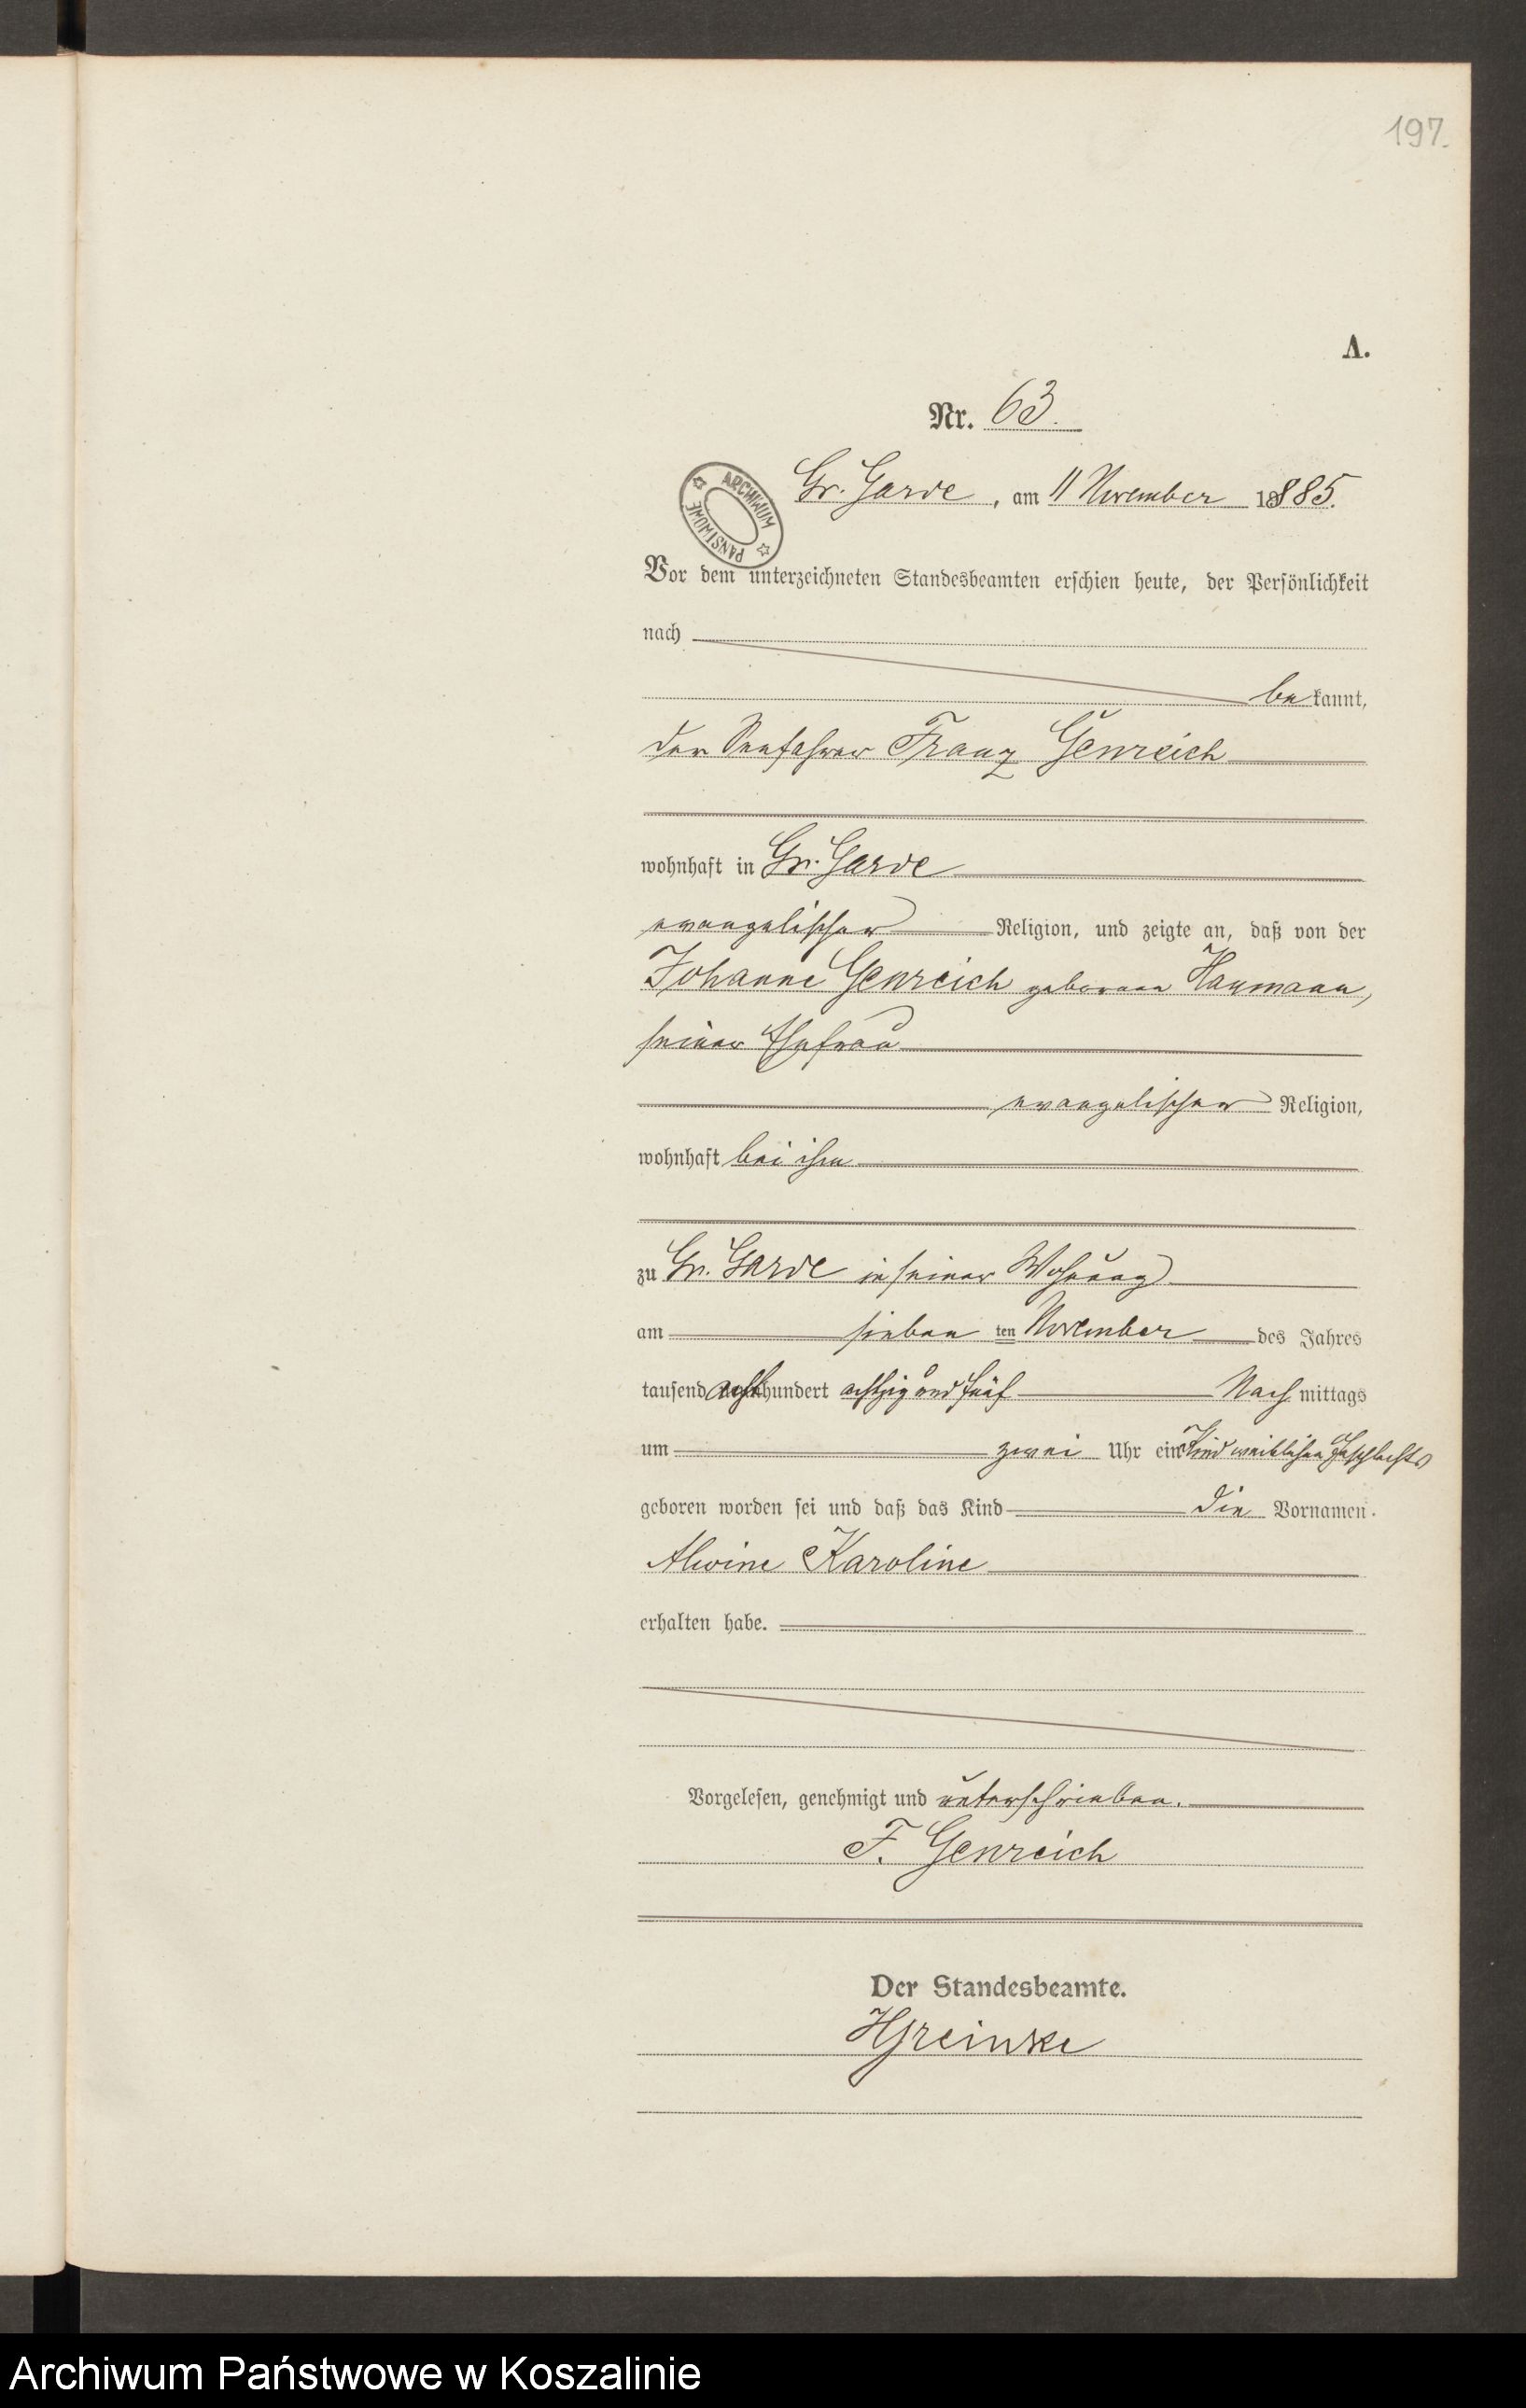 197.
A.
Nr. 63.
Gr. Garde, am 11 November 1885.
ARCHIWUM PAŃSTWOWE
Vor dem unterzeichneten Standesbeamten erschien heute, der Persönlichkeit
nach
bekannt,
der Seefahrer Franz Genreich
wohnhaft in Gr. Garde
evangelischer Religion, und zeigte an, daß von der
Johanne Genreich geborenen Haumann,
seiner Ehefrau
evangelischer Religion,
wohnhaft bei ihm
zu Gr. Garde in seiner Wohnung
am sieben ten November des Jahres
tausend acht hundert achtzig und fünf Nach mittags
um zwei Uhr ein Kind weiblichen Geschlechts
geboren worden sei und daß das Kind die Vornamen
Alwine Karoline
erhalten habe.
Vorgelesen, genehmigt und unterschrieben.
F. Genreich
Der Standesbeamte.
HGreinke
Archiwum Państwowe w Koszalinie